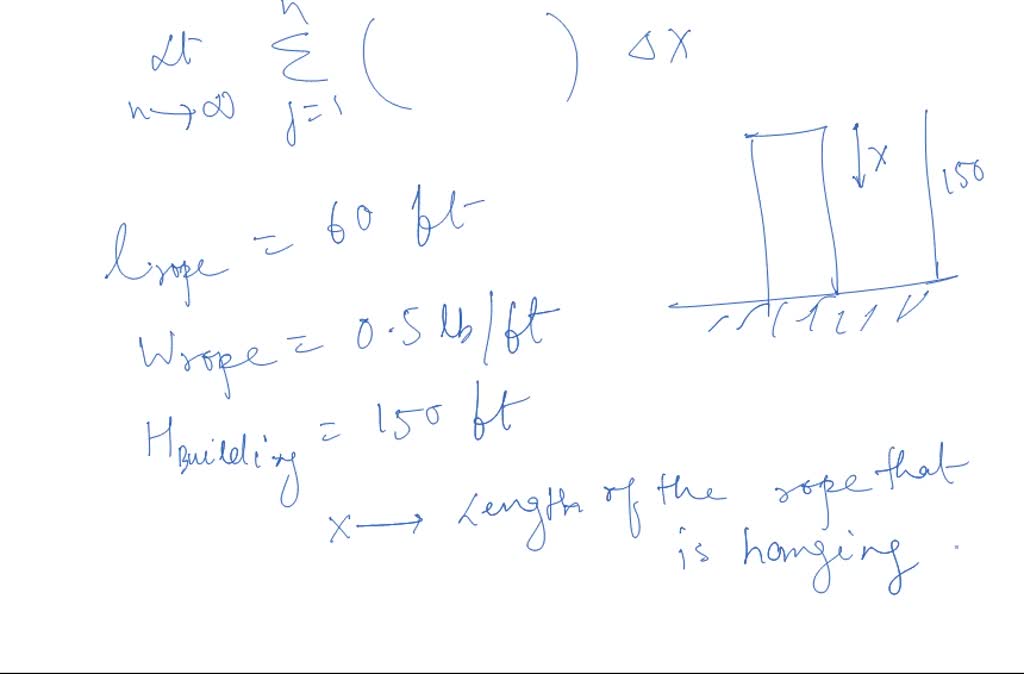 n
Lt Σ ( ) Δx
n→∞ j=1
x
150
l_rope = 60 ft
W_rope = 0.5 lb/ft
H_Building = 150 ft
x → Length of the rope that
is hanging.